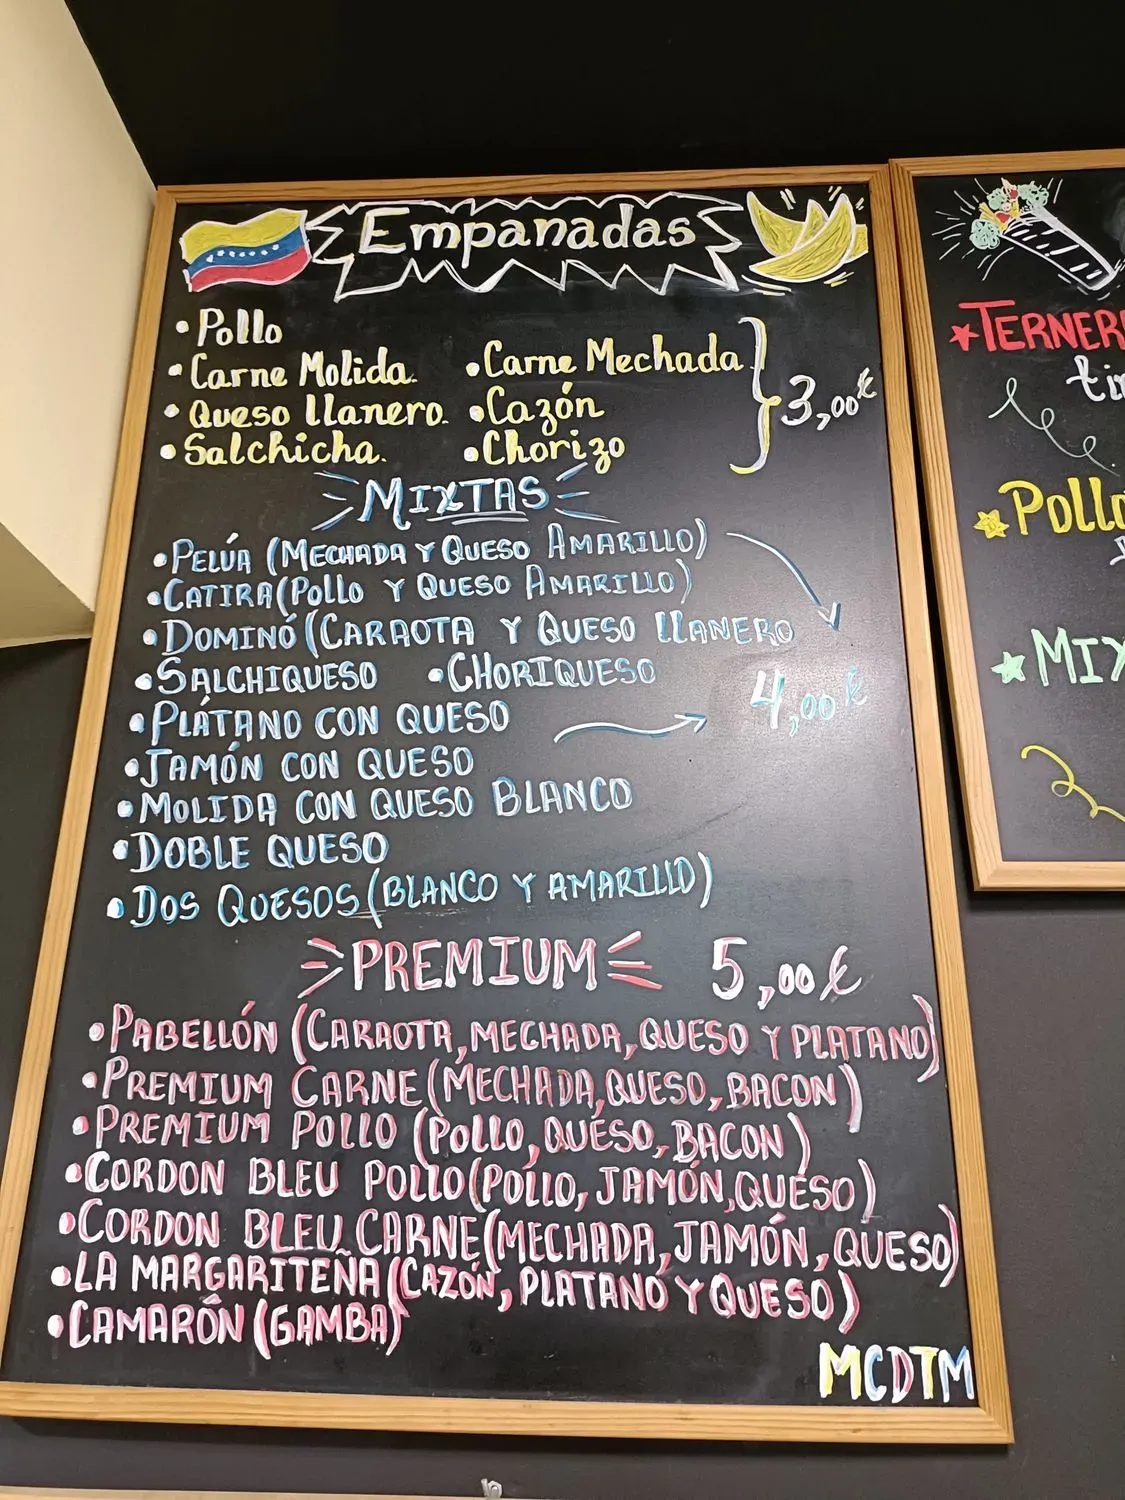 Empanadas
• Pollo
• Carne Molida. • Carne Mechada
• Queso llanero. • Cazón
• Salchicha. • Chorizo
3,00€
MIXTAS
• PELÚA (MECHADA Y QUESO AMARILLO)
• CATIRA (POLLO Y QUESO AMARILLO)
• DOMINÓ (CARAOTA Y QUESO LLANERO
• SALCHIQUESO • CHORIQUESO
4,00€
• PLÁTANO CON QUESO
• JAMÓN CON QUESO
• MOLIDA CON QUESO BLANCO
• DOBLE QUESO
• DOS QUESOS (BLANCO Y AMARILLO)
PREMIUM 5,00€
• PABELLÓN (CARAOTA, MECHADA, QUESO Y PLATANO)
• PREMIUM CARNE (MECHADA, QUESO, BACON)
• PREMIUM POLLO (POLLO, QUESO, BACON)
• CORDON BLEU POLLO (POLLO, JAMÓN, QUESO)
• CORDON BLEU CARNE (MECHADA, JAMÓN, QUESO)
• LA MARGARITEÑA (CAZÓN, PLATANO Y QUESO)
• CAMARÓN (GAMBA)
MCDTM
Pollo